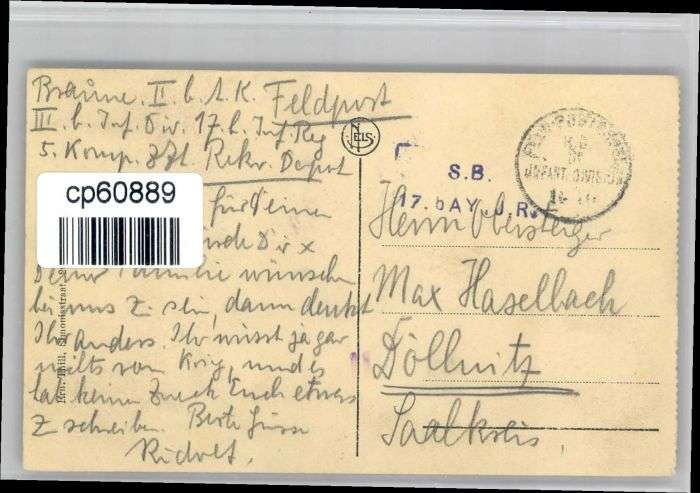 Braune. II. b. A. K. Feldpost
III. b. Inf. Div. 17. b. Inf. Reg
5. Komp. zzt. Rekr. Depot
cp60889
für Deinen
Dir x
Deiner Familie wünschen
bei uns z. sein, dann denkt
Ihr anders. Ihr wisst ja gar
nichts vom Krieg, und es
hat keinen Zweck Euch etwas
z. schreiben. Beste Grüsse
Ern. Thill,
NELS
S.B.
17. BAY. J. R.
INFANT. DIVISION
Herrn Obersteiger
Max Haselbach
Döllnitz
Saalkreis.